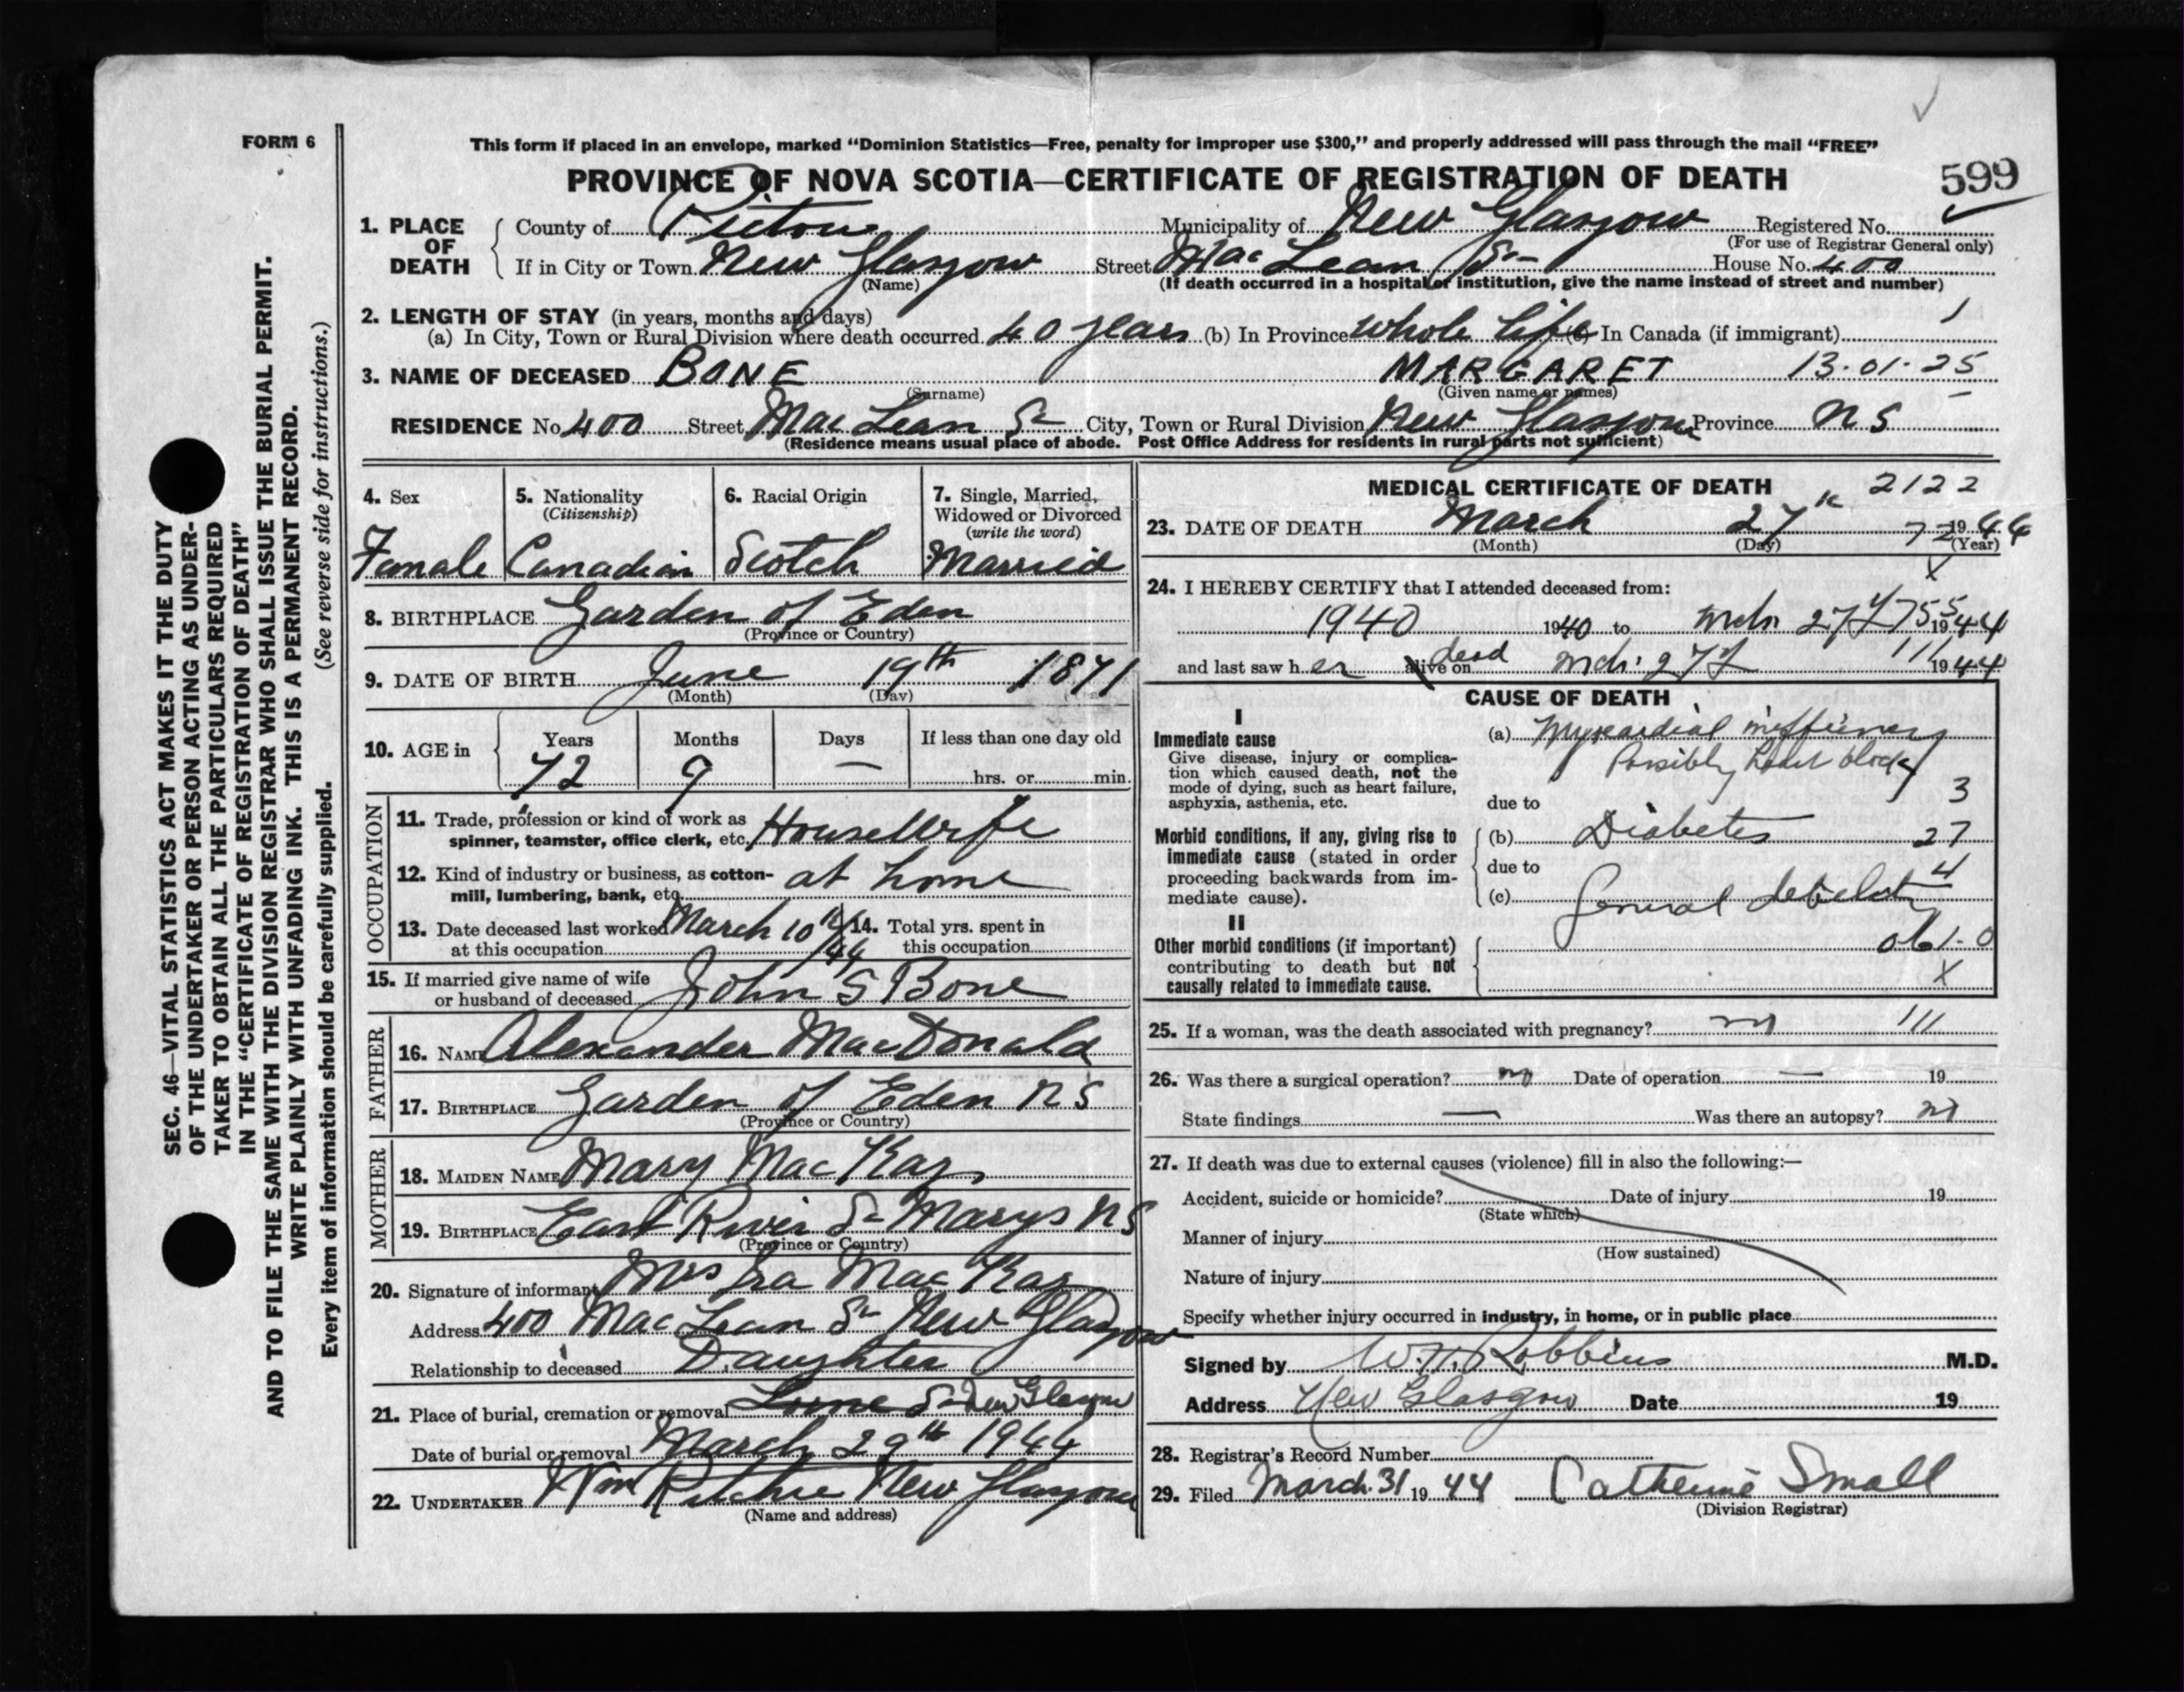 FORM 6
This form if placed in an envelope, marked "Dominion Statistics—Free, penalty for improper use $300," and properly addressed will pass through the mail "FREE"
PROVINCE OF NOVA SCOTIA—CERTIFICATE OF REGISTRATION OF DEATH
599
1. PLACE OF DEATH County of Pictou Municipality of New Glasgow Registered No.
(For use of Registrar General only)
If in City or Town New Glasgow Street MacLean St House No. 400
(Name)
(If death occurred in a hospital or institution, give the name instead of street and number)
2. LENGTH OF STAY (in years, months and days)
(a) In City, Town or Rural Division where death occurred 40 years (b) In Province whole life (c) In Canada (if immigrant)
3. NAME OF DECEASED BONE MARGARET 13-01-25
(Surname) (Given name or names)
RESIDENCE No. 400 Street MacLean St City, Town or Rural Division New Glasgow Province N S
(Residence means usual place of abode. Post Office Address for residents in rural parts not sufficient)
SEC. 46—VITAL STATISTICS ACT MAKES IT THE DUTY
OF THE UNDERTAKER OR PERSON ACTING AS UNDER-
TAKER TO OBTAIN ALL THE PARTICULARS REQUIRED
IN THE "CERTIFICATE OF REGISTRATION OF DEATH"
AND TO FILE THE SAME WITH THE DIVISION REGISTRAR WHO SHALL ISSUE THE BURIAL PERMIT.
WRITE PLAINLY WITH UNFADING INK. THIS IS A PERMANENT RECORD.
Every item of information should be carefully supplied. (See reverse side for instructions.)
4. Sex
Female
5. Nationality
(Citizenship)
Canadian
6. Racial Origin
Scotch
7. Single, Married,
Widowed or Divorced
(write the word)
Married
8. BIRTHPLACE Garden of Eden
(Province or Country)
9. DATE OF BIRTH June 19th 1871
(Month) (Day)
10. AGE in Years Months Days If less than one day old
72 9 — hrs. or min.
OCCUPATION
11. Trade, profession or kind of work as
spinner, teamster, office clerk, etc. HouseWife
12. Kind of industry or business, as cotton-
mill, lumbering, bank, etc. at home
13. Date deceased last worked
at this occupation March 10th/44
14. Total yrs. spent in
this occupation
15. If married give name of wife
or husband of deceased John S Bone
FATHER
16. NAME Alexander MacDonald
17. BIRTHPLACE Garden of Eden N S
(Province or Country)
MOTHER
18. MAIDEN NAME Mary MacKay
19. BIRTHPLACE East River St Marys N S
(Province or Country)
20. Signature of informant Mrs Ira MacKay
Address 400 MacLean St New Glasgow
Relationship to deceased Daughter
21. Place of burial, cremation or removal Lorne St New Glasgow
Date of burial or removal March 29th 1944
22. UNDERTAKER Wm Ritchie New Glasgow
(Name and address)
MEDICAL CERTIFICATE OF DEATH 2122
23. DATE OF DEATH March 27th 72 1944
(Month) (Day) (Year)
X
24. I HEREBY CERTIFY that I attended deceased from:
1940 1940 to Mch 27 1944
and last saw her alive on dead Mch: 27 111 1944
CAUSE OF DEATH
I
Immediate cause
Give disease, injury or complica-
tion which caused death, not the
mode of dying, such as heart failure,
asphyxia, asthenia, etc.
(a) Myocardial
Possibly heart block
due to 3
Morbid conditions, if any, giving rise to
immediate cause (stated in order
proceeding backwards from im-
mediate cause).
(b) Diabetes 27
due to 4
(c) General debility
II
Other morbid conditions (if important)
contributing to death but not
causally related to immediate cause.
061-0
X
25. If a woman, was the death associated with pregnancy? no 111
26. Was there a surgical operation? no Date of operation — 19
State findings — Was there an autopsy? no
27. If death was due to external causes (violence) fill in also the following:—
Accident, suicide or homicide? Date of injury 19
(State which)
Manner of injury
(How sustained)
Nature of injury
Specify whether injury occurred in industry, in home, or in public place
Signed by W. H. Robbins M.D.
Address New Glasgow Date 19
28. Registrar's Record Number
29. Filed March 31 1944 Catherine Small
(Division Registrar)